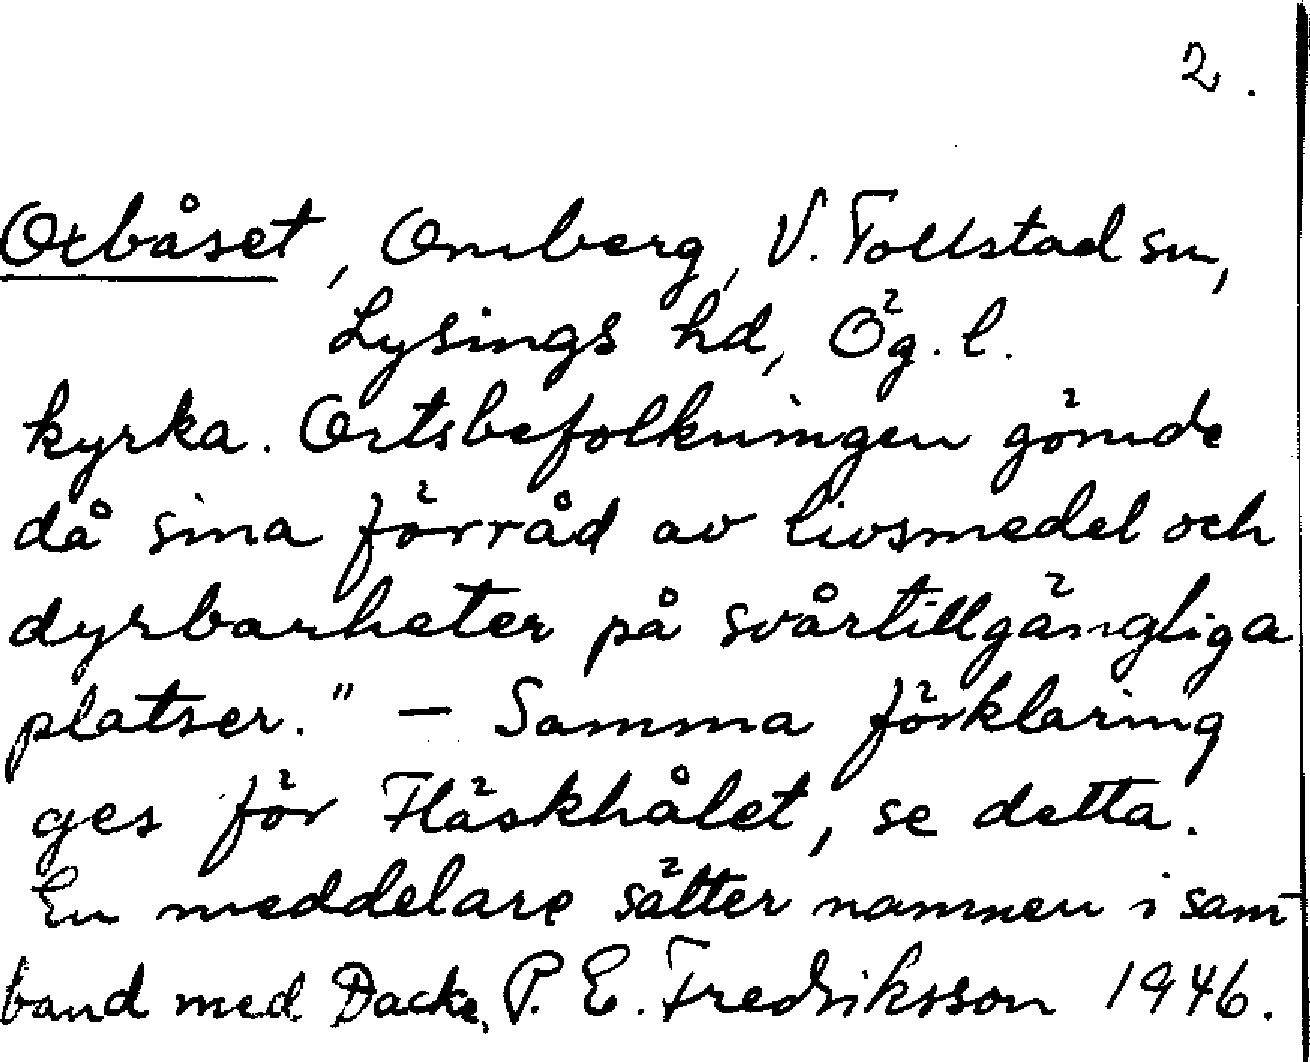 2.
Oxbåset, Omberg, V. Tollstad sn,
Lysings hd, Ög. l.
kyrka. Ortsbefolkningen gömde
då sina förråd av livsmedel och
dyrbarheter på svårtillgängliga
platser." - Samma förklaring
ges för Fläskhålet, se detta.
En meddelare sätter namnen i sam-
band med Dacke, P. E. Fredriksson 1946.